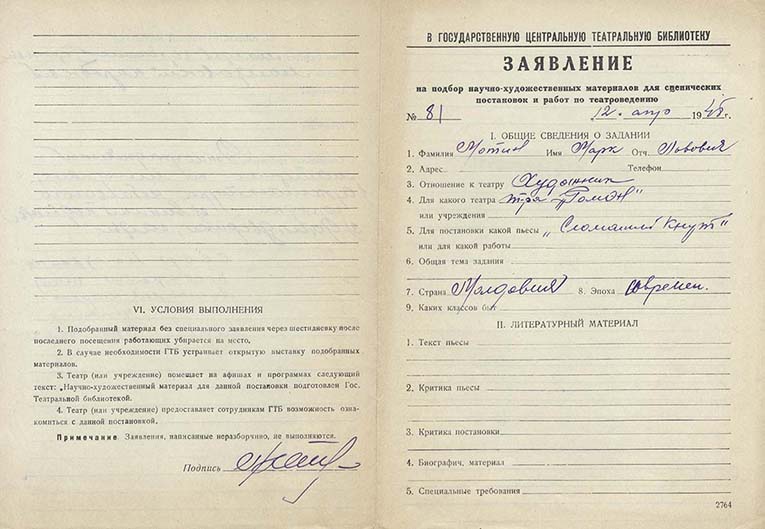 VI. УСЛОВИЯ ВЫПОЛНЕНИЯ
1. Подобранный материал без специального заявления через шестидневку после
последнего посещения работающих убирается на место.
2. В случае необходимости ГТБ устраивает открытую выставку подобранных
материалов.
3. Театр (или учреждение) помещает на афишах и программах следующий
текст: „Научно-художественный материал для данной постановки подготовлен Гос.
Театральной библиотекой.
4. Театр (или учреждение) предоставляет сотрудникам ГТБ возможность озна-
комиться с данной постановкой.
Примечание. Заявления, написанные неразборчиво, не выполняются.
Подпись
В ГОСУДАРСТВЕННУЮ ЦЕНТРАЛЬНУЮ ТЕАТРАЛЬНУЮ БИБЛИОТЕКУ
ЗАЯВЛЕНИЕ
на подбор научно-художественных материалов для сценических
постановок и работ по театроведению
№ 81 „12. апр 194
I. ОБЩИЕ СВЕДЕНИЯ О ЗАДАНИИ
1. Фамилия Мотин Имя Марк Отч. Львович
2. Адрес Телефон
3. Отношение к театру Художник
4. Для какого театра т-ра „Ромэн"
или учреждения
5. Для постановки какой пьесы „Сломанный Кнут"
или для какой работы
6. Общая тема задания
7. Страна Молдавия 8. Эпоха соврeмен.
9. Каких классов быт
II. ЛИТЕРАТУРНЫЙ МАТЕРИАЛ
1. Текст пьесы
2. Критика пьесы
3. Критика постановки
4. Биографич. материал
5. Специальные требования
2764